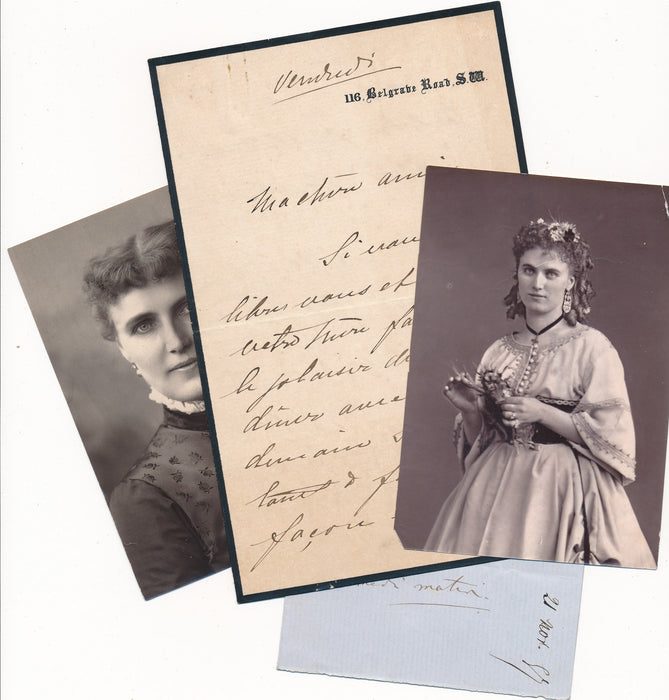 Vendredi
116, Belgrave Road, S.W.
Ma chère ami
Si vou
libres vous et
votre mère fa
le plaisir de
dîner avec
demain s
tout à f
façon
matin.
21 nov.